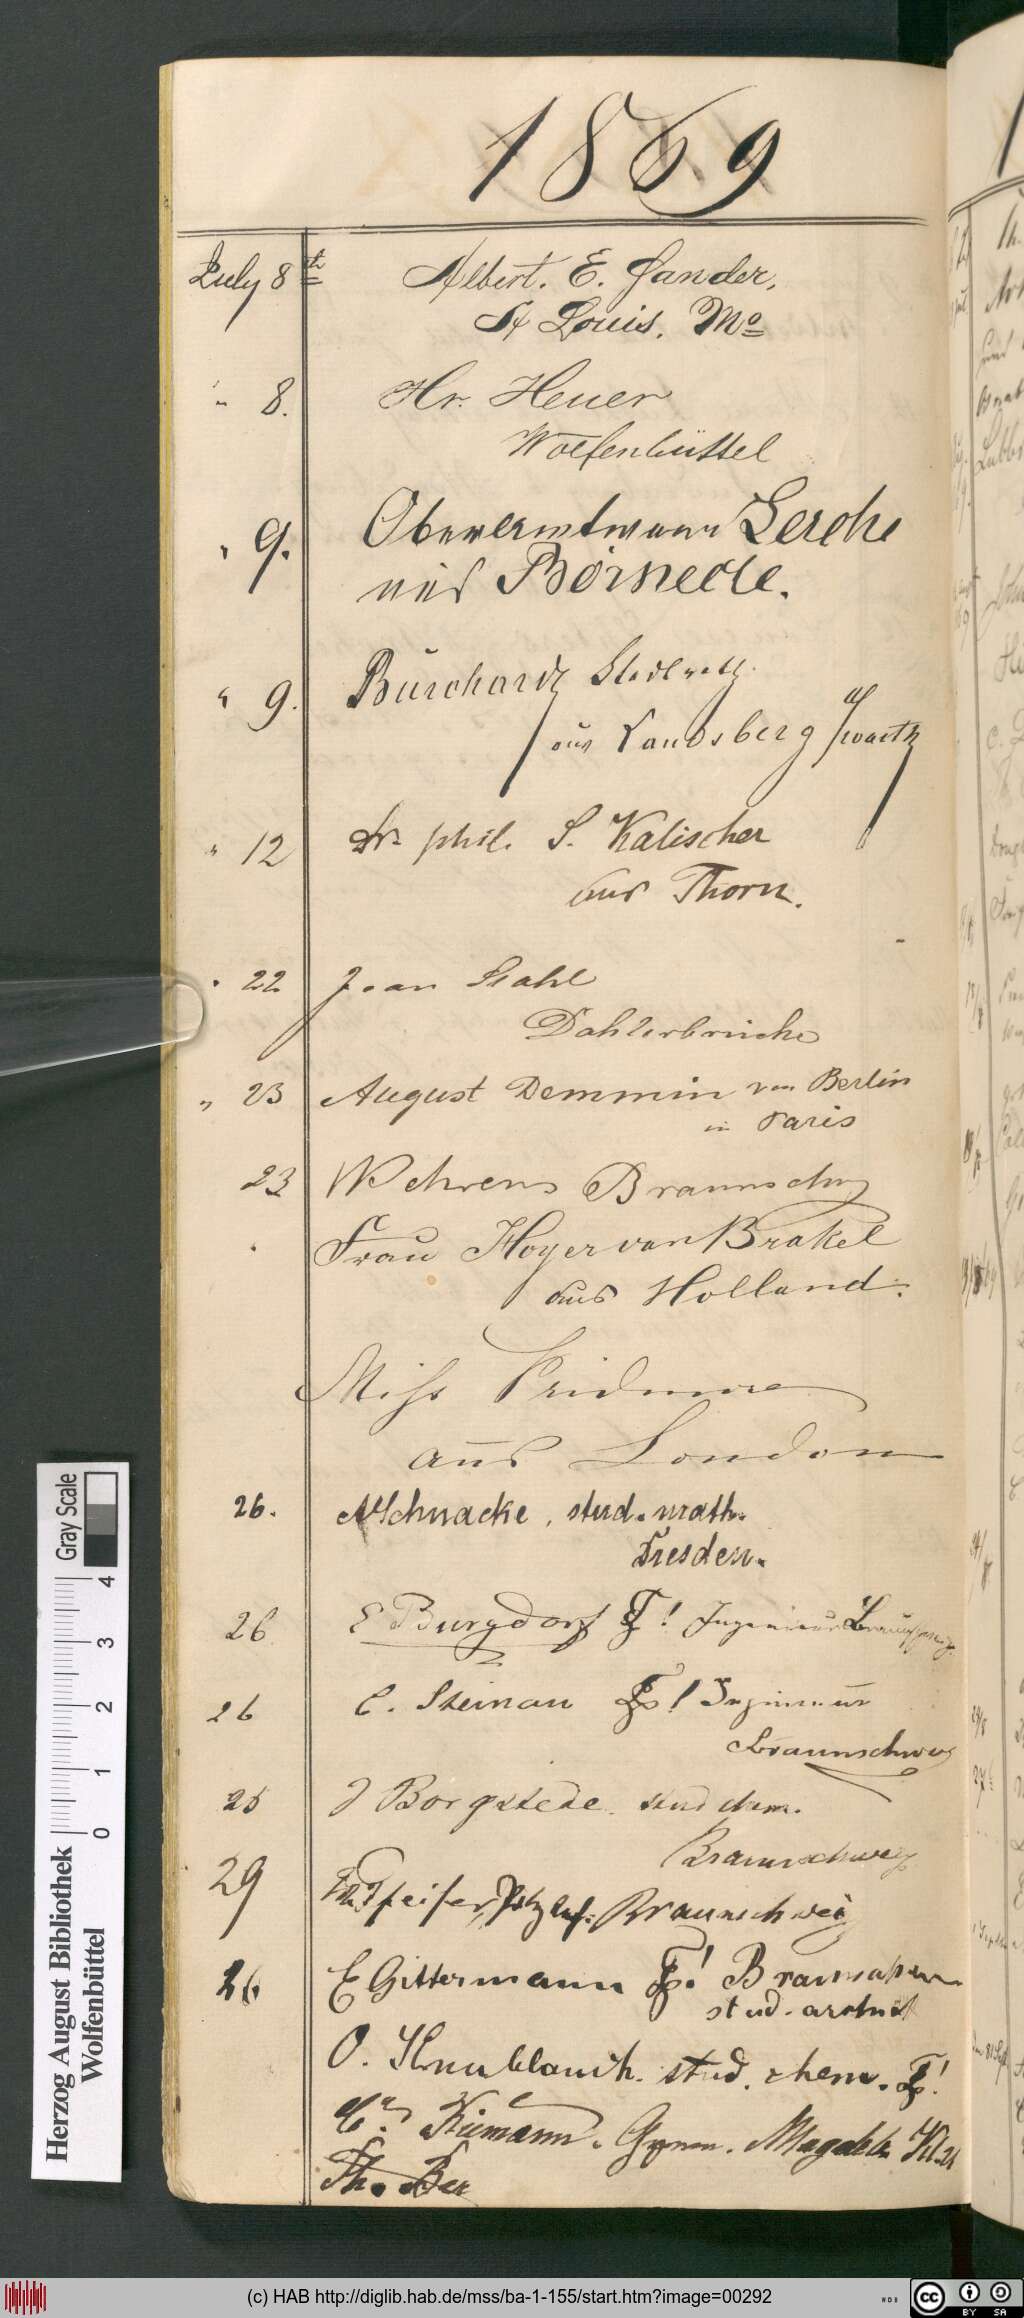 1869
July 8th Albert. E. Sander,
St Louis. Mo
" 8. Hr. Heuer
Wolfenbüttel
" 9. Oberamtmann Lerche
aus Börnecke.
" 9. Burchardt Stadtrath
aus Landsberg a/Warthe
" 12 Dr phil. S. Kalischer
aus Thorn.
" 22 Jean Stahl
Dahlerbrücke
" 23 August Demmin von Berlin
in Paris
23 Wehrens Braunschwg
Frau Hoyer van Brakel
aus Holland.
Miss
aus London
26. Schnacke, stud. math.
Dresden.
26 E Burgdorf Ingenieur Braunschweig.
26 C. Steinau Ingenieur
Braunschweig
25 J Borgstede. stud chem.
Braunschweig
29 Pfeifer, Braunschweig
26. E Gittermann Braunschweig
stud. archit
O. Knublauch. stud. chem.
Riemann. Gymn. Magdeb.
Th.
Herzog August Bibliothek
Wolfenbüttel
0 1 2 3 4
Gray Scale
(c) HAB http://diglib.hab.de/mss/ba-1-155/start.htm?image=00292
cc BY SA